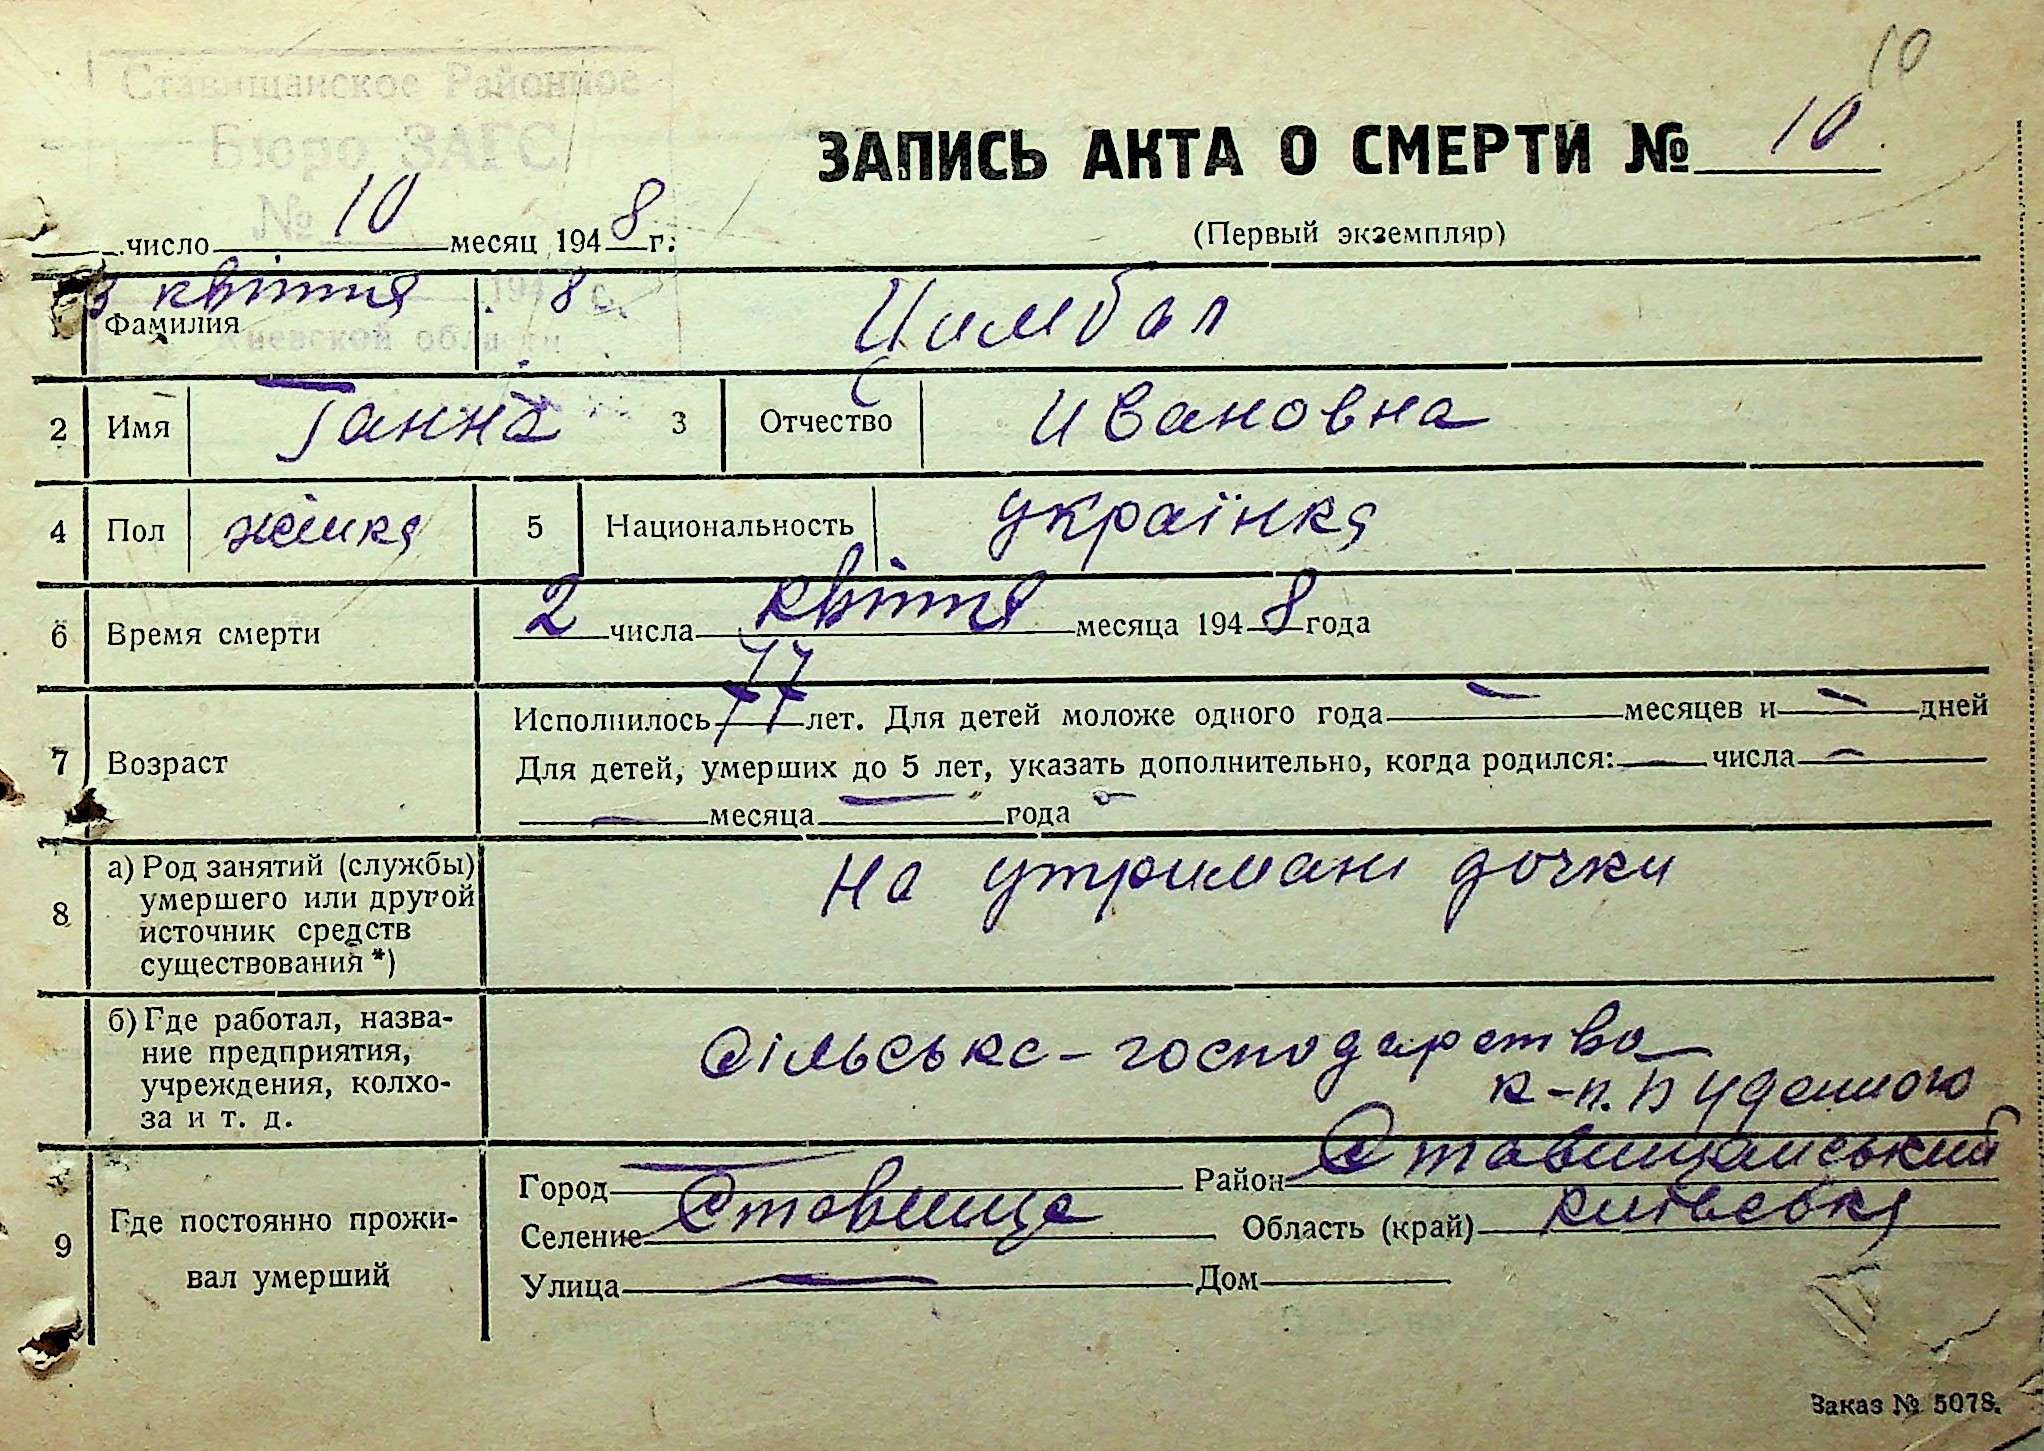 10
Ставищанское Районное
Бюро ЗАГС
ЗАПИСЬ АКТА О СМЕРТИ № 10
№ 10
число месяц 1948 г.
(Первый экземпляр)
3 квітня 194 8 г.
Киевской области
Фамилия Цимбал
2 Имя Ганна 3 Отчество Ивановна
4 Пол жінка 5 Национальность українка
6 Время смерти 2 числа квітня месяца 1948 года
77
7 Возраст Исполнилось 77 лет. Для детей моложе одного года — месяцев и — дней
Для детей, умерших до 5 лет, указать дополнительно, когда родился: — числа —
— месяца — года —
8 а) Род занятий (службы) умершего или другой источник средств существования *) На утримані дочки
б) Где работал, название предприятия, учреждения, колхоза и т. д. Сільсько-господарства
к-п. Буденного
9 Где постоянно проживал умерший
Город — Район Ставищанський
Селение Ставище Область (край) Київська
Улица — Дом
Заказ № 5078.